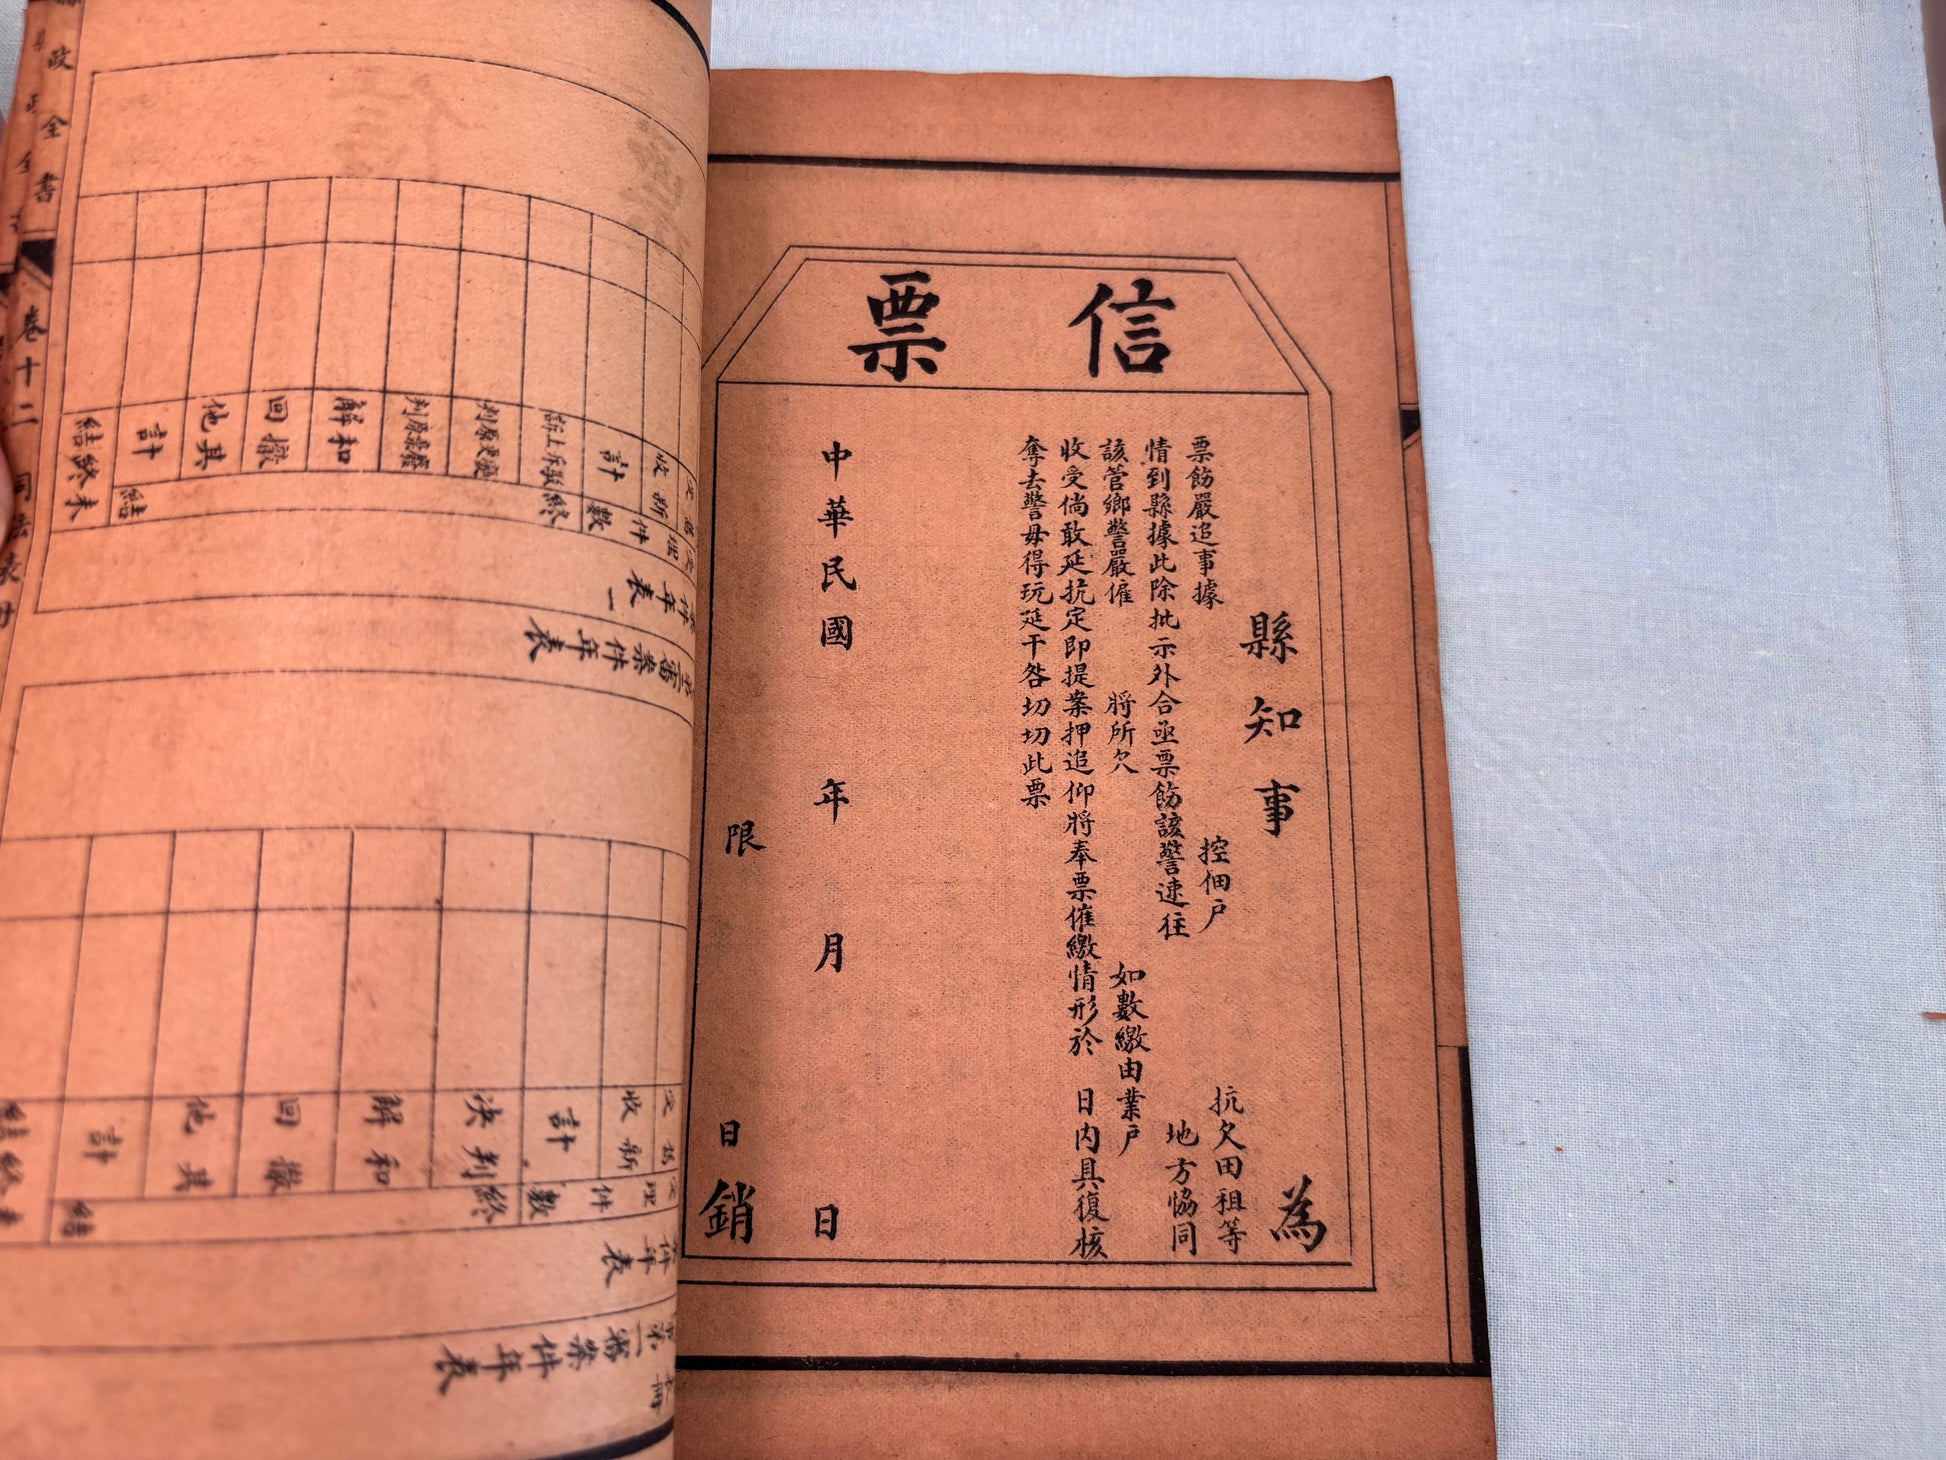 信票
縣知事 為
票飭嚴追事據 控佃戶 抗欠田租等
情到縣據此除批示外合亟票飭該警速往 地方協同
該管鄉警嚴催 將所欠 如數繳由業戶
收受倘敢延抗定即提案押追仰將奉票催繳情形於 日內具復核
奪去警毋得玩延干咎切切此票
中華民國 年 月 日
限 日銷
政全書
卷十二
件年表一
審案件年表
收
計
件數
終
訴上斥駁
判原更變
判原棄廢
解和
回撤
他其
計
結
結終未
件年表
第一審案件年表
收新
計
件數
終
決判
解和
回撤
他其
計
結